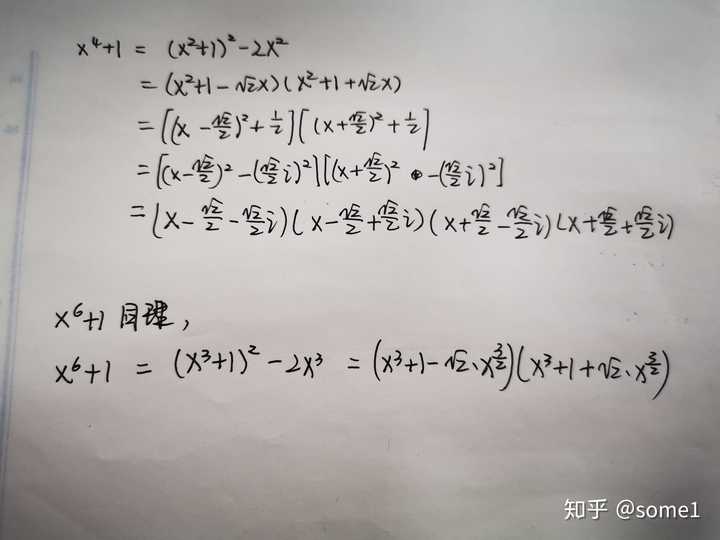 x⁴+1 = (x²+1)²-2x²
= (x²+1-√2x)(x²+1+√2x)
= [(x-√2/2)²+1/2][(x+√2/2)²+1/2]
= [(x-√2/2)²-(√2/2 i)²][(x+√2/2)²-(√2/2 i)²]
= (x-√2/2-√2/2 i)(x-√2/2+√2/2 i)(x+√2/2-√2/2 i)(x+√2/2+√2/2 i)
x⁶+1 同理,
x⁶+1 = (x³+1)²-2x³ = (x³+1-√2、x^(3/2))(x³+1+√2、x^(3/2))
知乎 @some1